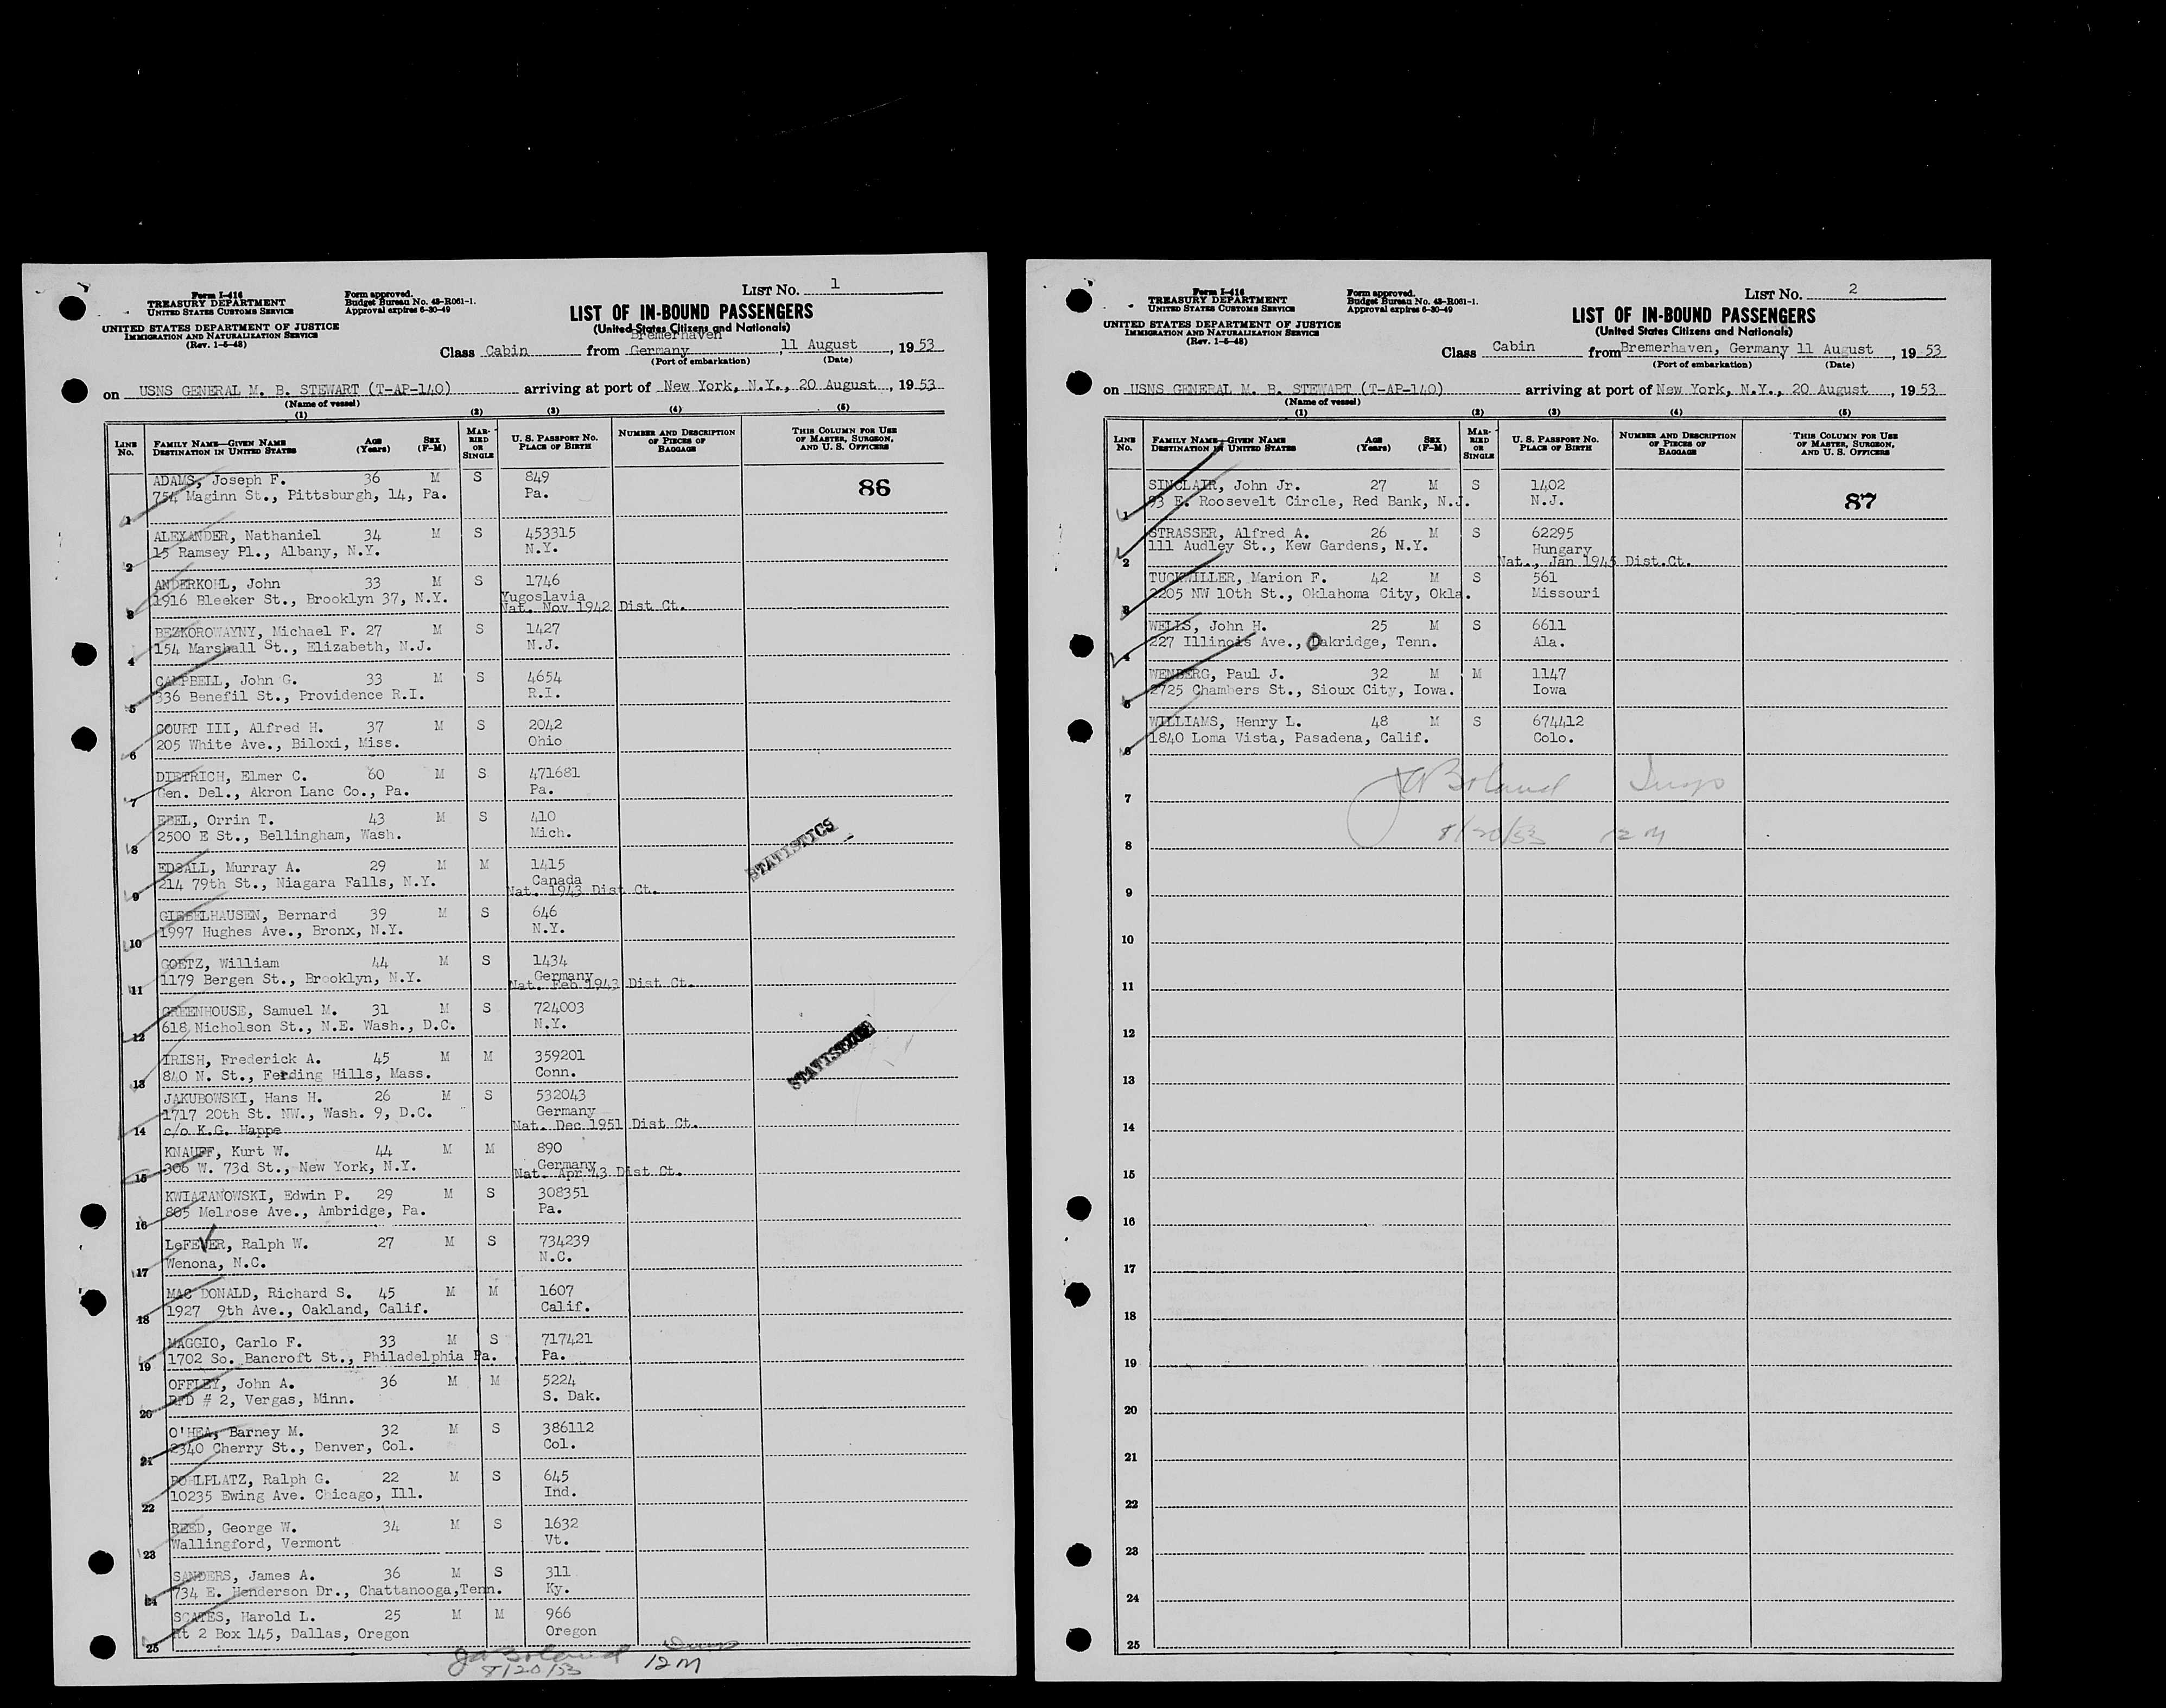 Form I-416
TREASURY DEPARTMENT
UNITED STATES CUSTOMS SERVICE
UNITED STATES DEPARTMENT OF JUSTICE
IMMIGRATION AND NATURALIZATION SERVICE
(Rev. 1-5-48)
Form approved.
Budget Bureau No. 43-R061-1.
Approval expires 6-30-49
LIST No. 1
LIST OF IN-BOUND PASSENGERS
(United States Citizens and Nationals)
Class Cabin from Bremerhaven Germany, 11 August, 1953
(Port of embarkation) (Date)
on USNS GENERAL M. B. STEWART (T-AP-140) arriving at port of New York, N.Y., 20 August, 1953
(Name of vessel)
(1) (2) (3) (4) (5)
LINE No. FAMILY NAME—GIVEN NAME DESTINATION IN UNITED STATES AGE (Years) SEX (F-M) MARRIED OR SINGLE U. S. PASSPORT No. PLACE OF BIRTH NUMBER AND DESCRIPTION OF PIECES OF BAGGAGE THIS COLUMN FOR USE OF MASTER, SURGEON, AND U. S. OFFICERS
86
1 ADAMS, Joseph F. 36 M S 849
754 Maginn St., Pittsburgh, 14, Pa. Pa.
2 ALEXANDER, Nathaniel 34 M S 453315
15 Ramsey Pl., Albany, N.Y. N.Y.
3 ANDERKOHL, John 33 M S 1746
1916 Bleeker St., Brooklyn 37, N.Y. Yugoslavia
Nat. Nov 1942 Dist Ct.
4 BEZKOROWAYNY, Michael F. 27 M S 1427
154 Marshall St., Elizabeth, N.J. N.J.
5 CAMPBELL, John G. 33 M S 4654
336 Benefil St., Providence R.I. R.I.
6 COURT III, Alfred H. 37 M S 2042
205 White Ave., Biloxi, Miss. Ohio
7 DIETRICH, Elmer C. 60 M S 471681
Gen. Del., Akron Lanc Co., Pa. Pa.
8 EBEL, Orrin T. 43 M S 410
2500 E St., Bellingham, Wash. Mich.
STATISTICS
9 EDSALL, Murray A. 29 M M 1415
214 79th St., Niagara Falls, N.Y. Canada
Nat. 1943 Dist Ct.
10 GIEBELHAUSEN, Bernard 39 M S 646
1997 Hughes Ave., Bronx, N.Y. N.Y.
11 GOETZ, William 44 M S 1434
1179 Bergen St., Brooklyn, N.Y. Germany
Nat. Feb 1943 Dist Ct.
12 GREENHOUSE, Samuel M. 31 M S 724003
618 Nicholson St., N.E. Wash., D.C. N.Y.
STATISTICS
13 IRISH, Frederick A. 45 M M 359201
840 N. St., Feeding Hills, Mass. Conn.
14 JAKUBOWSKI, Hans H. 26 M S 532043
1717 20th St. NW., Wash. 9, D.C. Germany
c/o K.G. Happe Nat. Dec 1951 Dist Ct.
15 KNAUFF, Kurt W. 44 M M 890
306 W. 73d St., New York, N.Y. Germany
Nat. Apr 43 Dist Ct.
16 KWIATANOWSKI, Edwin P. 29 M S 308351
805 Melrose Ave., Ambridge, Pa. Pa.
17 LeFEVER, Ralph W. 27 M S 734239
Wenona, N.C. N.C.
18 MAC DONALD, Richard S. 45 M M 1607
1927 9th Ave., Oakland, Calif. Calif.
19 MAGGIO, Carlo F. 33 M S 717421
1702 So. Bancroft St., Philadelphia Pa. Pa.
20 OFFLEY, John A. 36 M M 5224
RFD # 2, Vergas, Minn. S. Dak.
21 O'HEA, Barney M. 32 M S 386112
2340 Cherry St., Denver, Col. Col.
22 POHLPLATZ, Ralph G. 22 M S 645
10235 Ewing Ave. Chicago, Ill. Ind.
23 REED, George W. 34 M S 1632
Wallingford, Vermont Vt.
24 SANDERS, James A. 36 M S 311
734 E. Henderson Dr., Chattanooga, Tenn. Ky.
25 SCATES, Harold L. 25 M M 966
Rt 2 Box 145, Dallas, Oregon Oregon
JA Boland Insp
8/20/53 12 M
Form I-416
TREASURY DEPARTMENT
UNITED STATES CUSTOMS SERVICE
UNITED STATES DEPARTMENT OF JUSTICE
IMMIGRATION AND NATURALIZATION SERVICE
(Rev. 1-5-48)
Form approved.
Budget Bureau No. 43-R061-1.
Approval expires 6-30-49
LIST No. 2
LIST OF IN-BOUND PASSENGERS
(United States Citizens and Nationals)
Class Cabin from Bremerhaven, Germany 11 August, 1953
(Port of embarkation) (Date)
on USNS GENERAL M. B. STEWART (T-AP-140) arriving at port of New York, N.Y., 20 August, 1953
(Name of vessel)
(1) (2) (3) (4) (5)
LINE No. FAMILY NAME—GIVEN NAME DESTINATION IN UNITED STATES AGE (Years) SEX (F-M) MARRIED OR SINGLE U. S. PASSPORT No. PLACE OF BIRTH NUMBER AND DESCRIPTION OF PIECES OF BAGGAGE THIS COLUMN FOR USE OF MASTER, SURGEON, AND U. S. OFFICERS
87
1 SINCLAIR, John Jr. 27 M S 1402
93 E. Roosevelt Circle, Red Bank, N.J. N.J.
2 STRASSER, Alfred A. 26 M S 62295
111 Audley St., Kew Gardens, N.Y. Hungary
Nat., Jan 1945 Dist.Ct.
3 TUCKWILLER, Marion F. 42 M S 561
2205 NW 10th St., Oklahoma City, Okla. Missouri
4 WELLS, John H. 25 M S 6611
227 Illinois Ave., Oakridge, Tenn. Ala.
5 WENBERG, Paul J. 32 M M 1147
2725 Chambers St., Sioux City, Iowa. Iowa
6 WILLIAMS, Henry L. 48 M S 674412
1840 Loma Vista, Pasadena, Calif. Colo.
JA Boland Insp
7
8/20/53 12 M
8
9
10
11
12
13
14
15
16
17
18
19
20
21
22
23
24
25